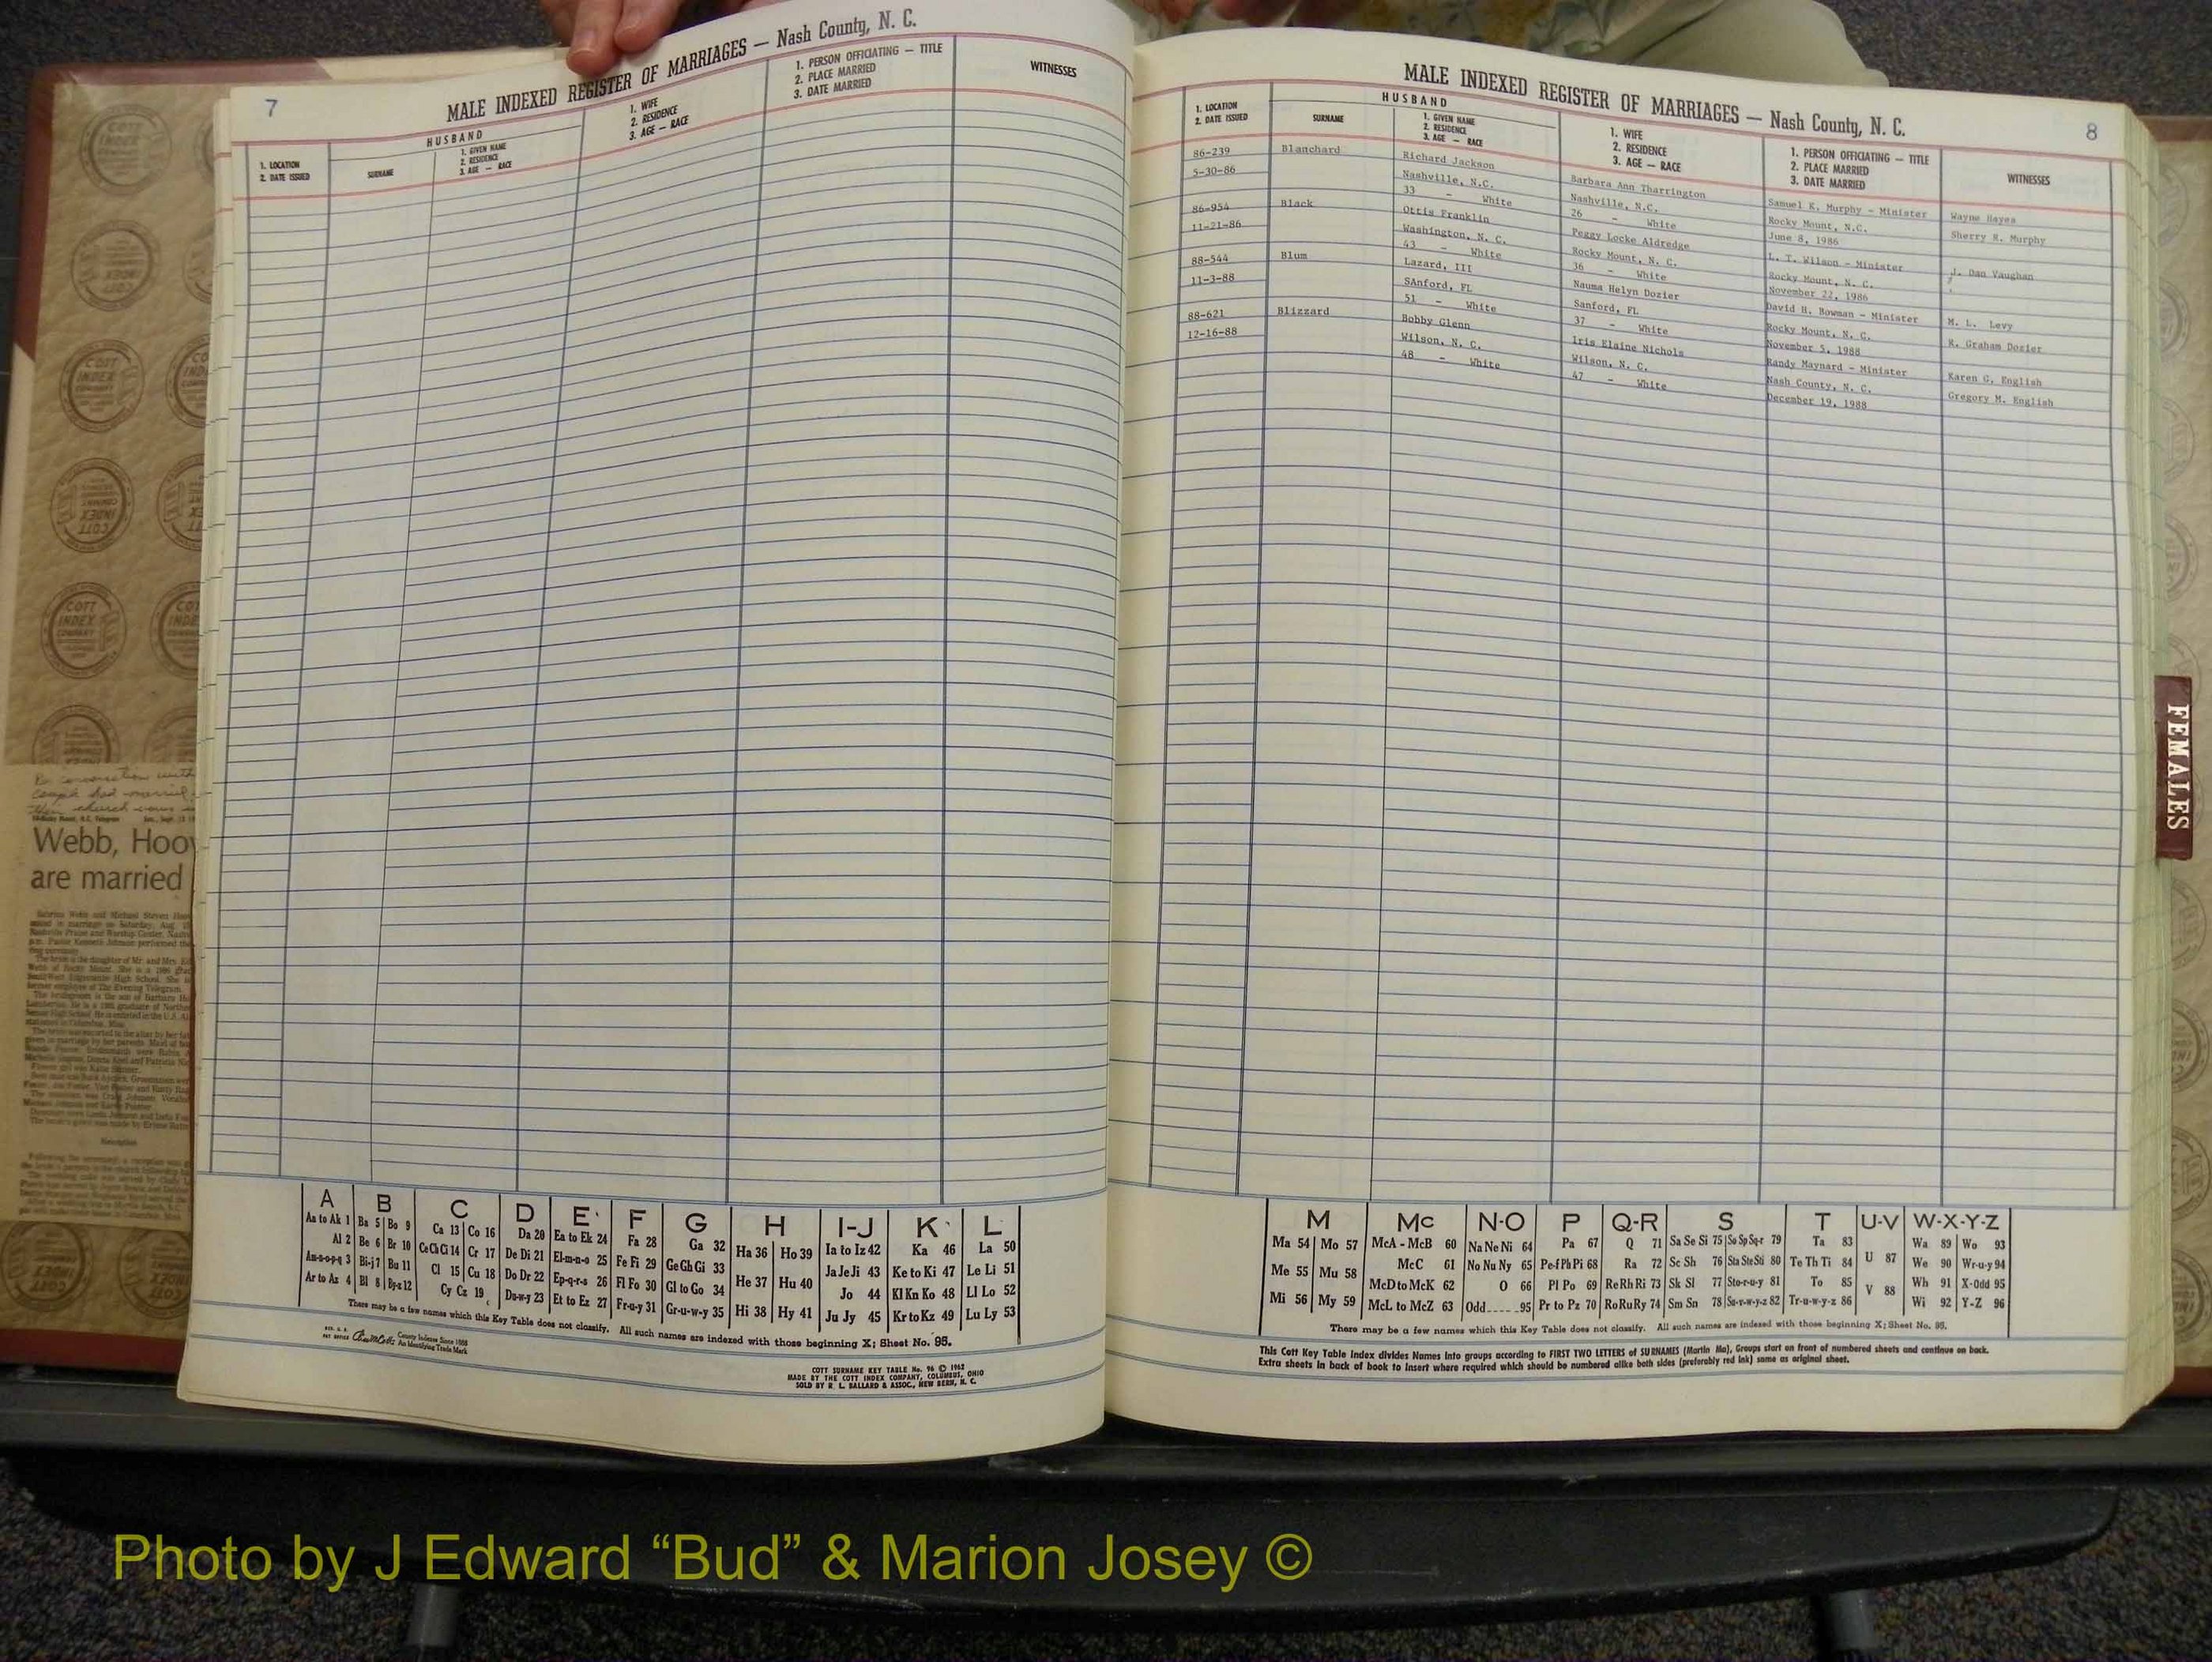 7
MALE INDEXED REGISTER OF MARRIAGES — Nash County, N. C.
1. LOCATION
2. DATE ISSUED
HUSBAND
SURNAME
1. GIVEN NAME
2. RESIDENCE
3. AGE — RACE
1. WIFE
2. RESIDENCE
3. AGE — RACE
1. PERSON OFFICIATING — TITLE
2. PLACE MARRIED
3. DATE MARRIED
WITNESSES
A B C D E F G H I-J K L
Aa to Ak 1 Ba 5 Bo 9 Ca 13 Co 16 Da 20 Ea to Ek 24 Fa 28 Ga 32 Ha 36 Ho 39 Ia to Iz 42 Ka 46 La 50
Al 2 Be 6 Br 10 Ce Ch Ci 14 Cr 17 De Di 21 El-m-n-o 25 Fe Fi 29 Ge Gh Gi 33 He 37 Hu 40 Ja Je Ji 43 Ke to Ki 47 Le Li 51
Am-n-o-p-q 3 Bi-j 7 Bu 11 Cl 15 Cu 18 Do Dr 22 Ep-q-r-s 26 Fl Fo 30 Gl to Go 34 Hi 38 Hy 41 Jo 44 Kl Kn Ko 48 Ll Lo 52
Ar to Az 4 Bl 8 By-z 12 Cy Cz 19 Du-w-y 23 Et to Ez 27 Fr-u-y 31 Gr-u-w-y 35 Ju Jy 45 Kr to Kz 49 Lu Ly 53
There may be a few names which this Key Table does not classify. All such names are indexed with those beginning X; Sheet No. 95.
County Indexes Since 1888
An Identifying Trade Mark
COTT SURNAME KEY TABLE No. 96 © 1962
MADE BY THE COTT INDEX COMPANY, COLUMBUS, OHIO
SOLD BY R. L. BALLARD & ASSOC., NEW BERN, N. C.
MALE INDEXED REGISTER OF MARRIAGES — Nash County, N. C.
8
1. LOCATION
2. DATE ISSUED
HUSBAND
SURNAME
1. GIVEN NAME
2. RESIDENCE
3. AGE — RACE
1. WIFE
2. RESIDENCE
3. AGE — RACE
1. PERSON OFFICIATING — TITLE
2. PLACE MARRIED
3. DATE MARRIED
WITNESSES
86-239 Blanchard Richard Jackson Barbara Ann Tharrington Samuel K. Murphy - Minister Wayne Hayes
5-30-86 Nashville, N.C. Nashville, N.C. Rocky Mount, N.C. Sherry R. Murphy
33 - White 26 - White June 8, 1986
86-954 Black Ottis Franklin Peggy Locke Aldredge L. T. Wilson - Minister J. Dan Vaughan
11-21-86 Washington, N. C. Rocky Mount, N. C. Rocky Mount, N. C.
43 - White 36 - White November 22, 1986
88-544 Blum Lazard, III Nauma Helyn Dozier David H. Bowman - Minister M. L. Levy
11-3-88 SAnford, FL Sanford, FL Rocky Mount, N. C. R. Graham Dozier
51 - White 37 - White November 5, 1988
88-621 Blizzard Bobby Glenn Iris Elaine Nichols Randy Maynard - Minister Karen G. English
12-16-88 Wilson, N. C. Wilson, N. C. Nash County, N. C. Gregory M. English
48 - White 47 - White December 19, 1988
M Mc N-O P Q-R S T U-V W-X-Y-Z
Ma 54 Mo 57 McA - McB 60 Na Ne Ni 64 Pa 67 Q 71 Sa Se Si 75 So Sp Sq-r 79 Ta 83 U 87 Wa 89 Wo 93
Me 55 Mu 58 McC 61 No Nu Ny 65 Pe-f Ph Pi 68 Ra 72 Sc Sh 76 Sta Ste Sti 80 Te Th Ti 84 V 88 We 90 Wr-u-y 94
Mi 56 My 59 McD to McK 62 O 66 Pl Po 69 Re Rh Ri 73 Sk Sl 77 Sto-r-u-y 81 To 85 Wh 91 X-Odd 95
McL to McZ 63 Odd 95 Pr to Pz 70 Ro Ru Ry 74 Sm Sn 78 Su-v-w-y-z 82 Tr-u-w-y-z 86 Wi 92 Y-Z 96
There may be a few names which this Key Table does not classify. All such names are indexed with those beginning X; Sheet No. 95.
This Cott Key Table Index divides Names into groups according to FIRST TWO LETTERS of SURNAMES (Martin Ma), Groups start on front of numbered sheets and continue on back.
Extra sheets in back of book to insert where required which should be numbered alike both sides (preferably red ink) same as original sheet.
FEMALES
COTT INDEX COMPANY
Webb, Hoo
are married
Photo by J Edward “Bud” & Marion Josey ©